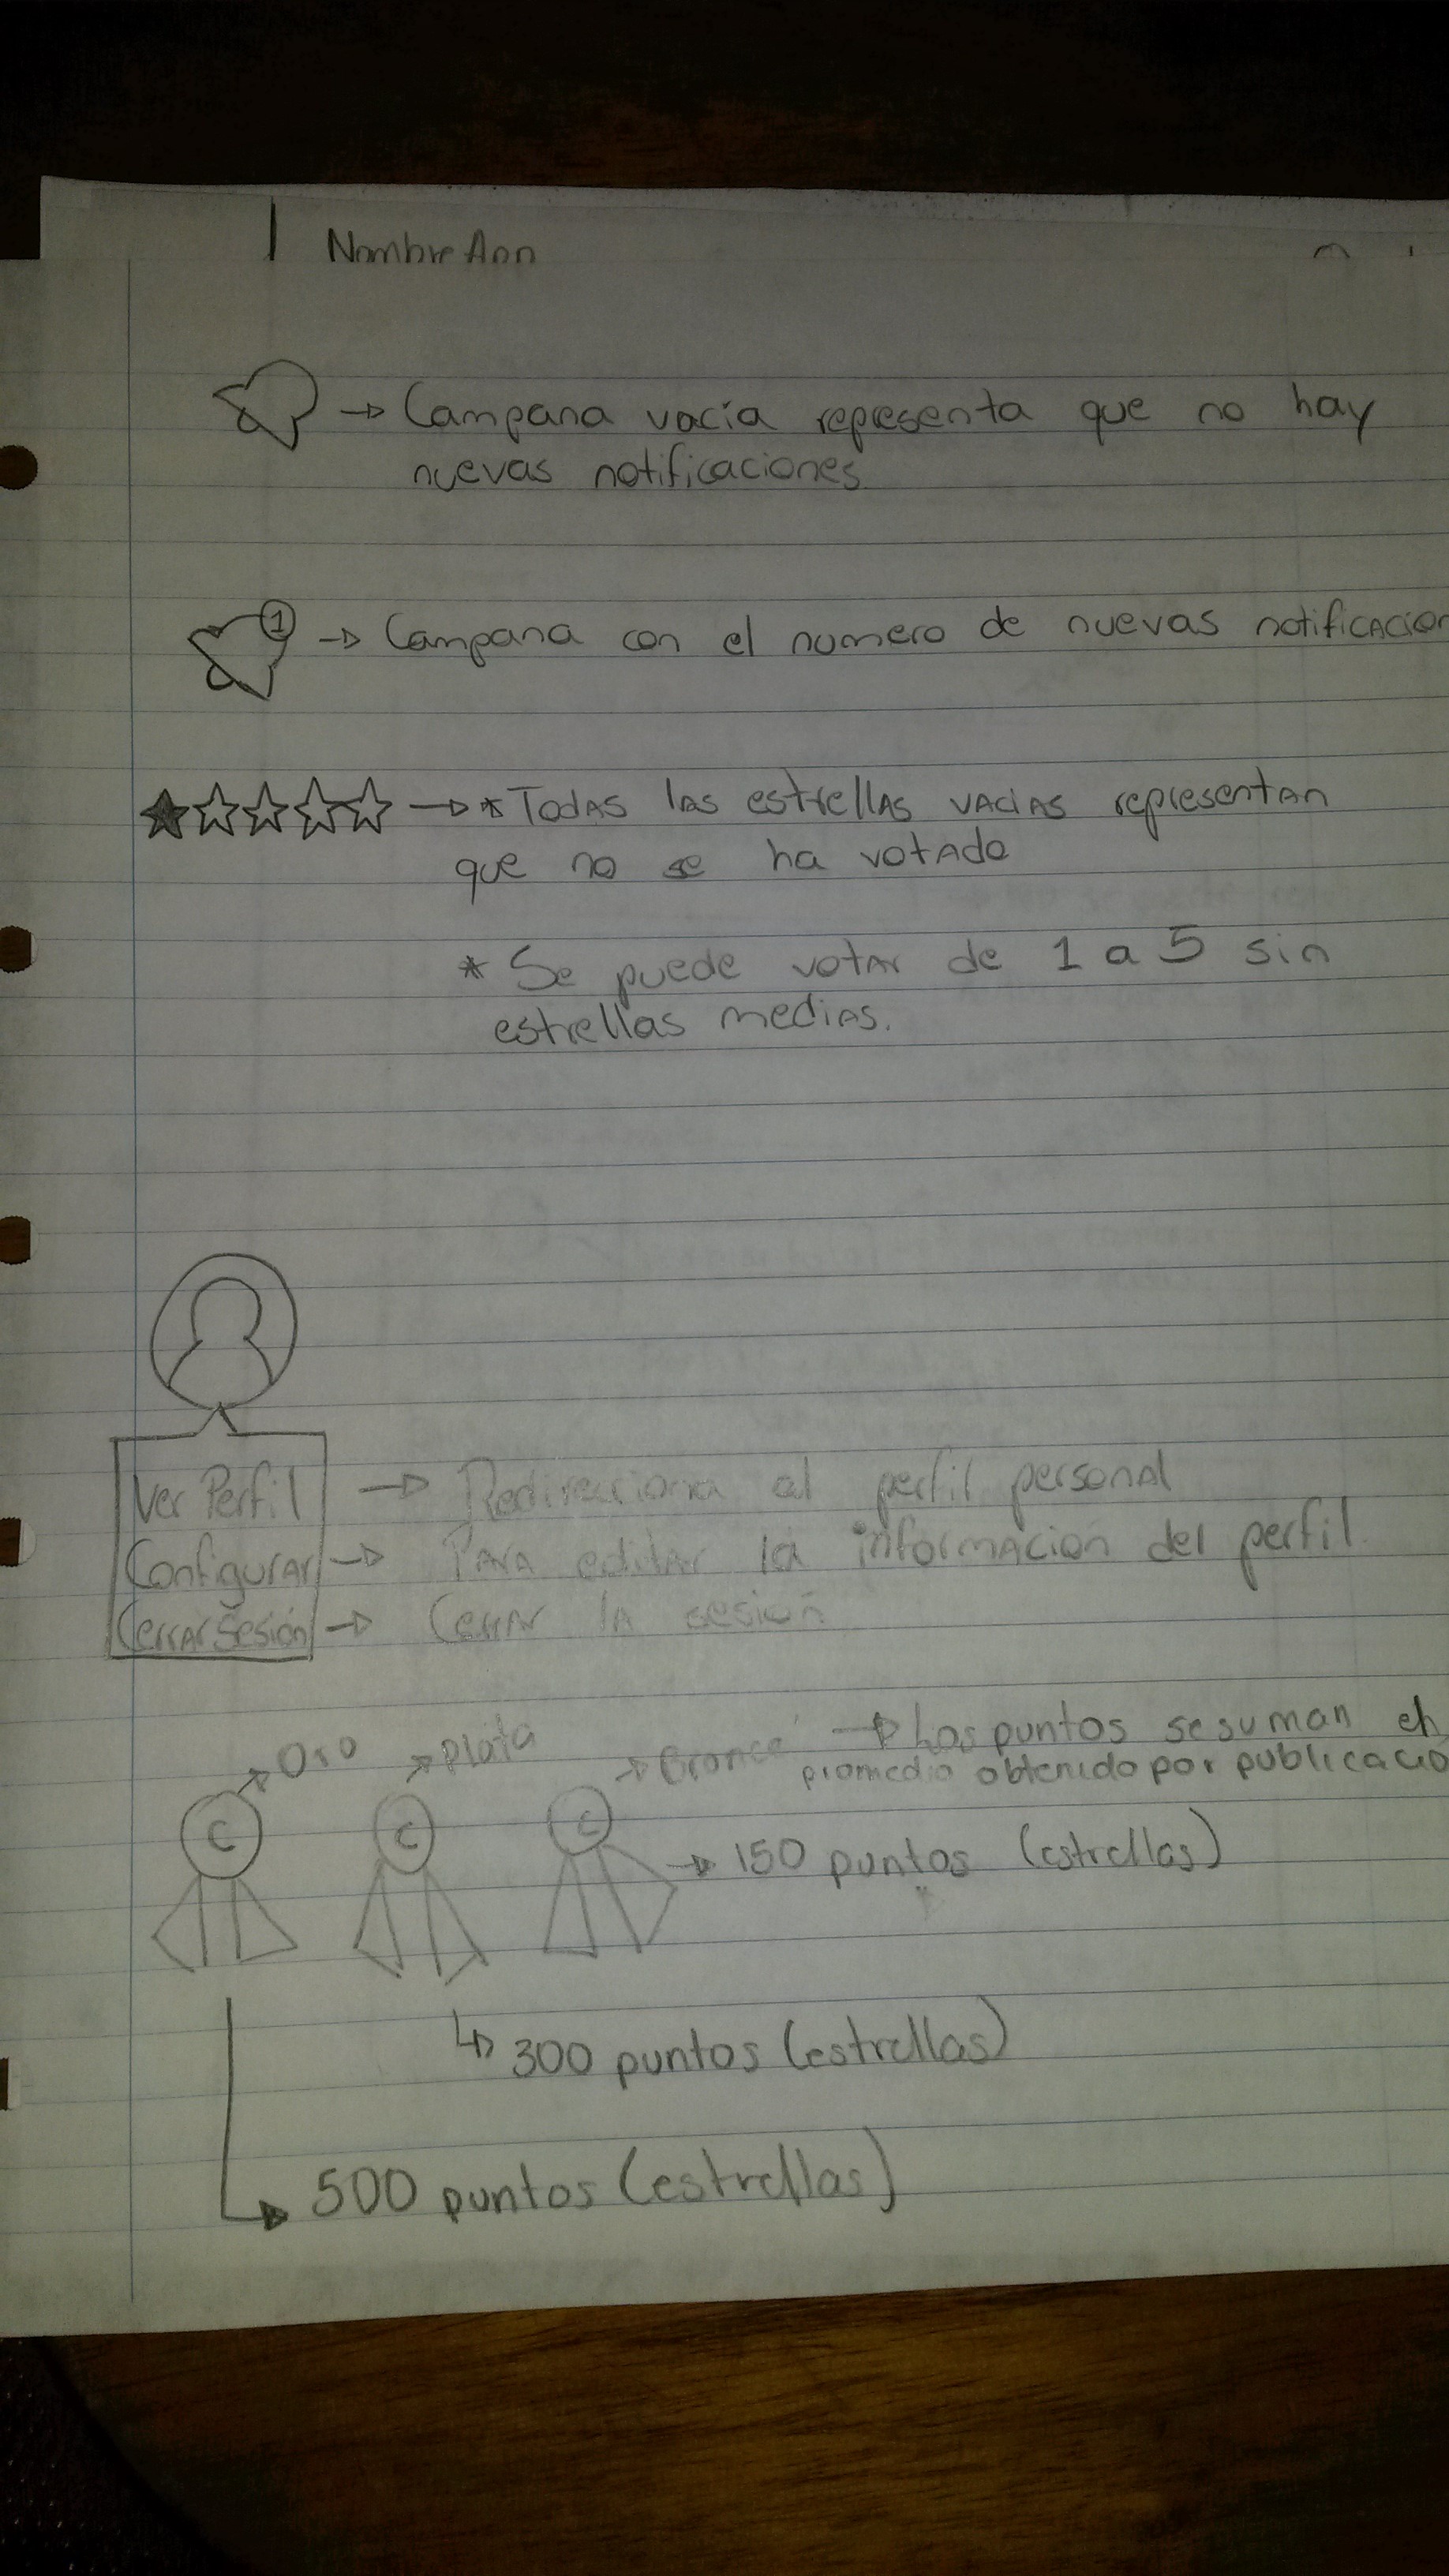 Nombre App
→ Campana vacía representa que no hay
nuevas notificaciones
1 → Campana con el numero de nuevas notificacion
→ * Todas las estrellas vacias representan
que no se ha votado
* Se puede votar de 1 a 5 sin
estrellas medias.
Ver Perfil → Redirecciona al perfil personal
Configurar → Para editar la información del perfil.
Cerrar Sesión → Cerrar la sesión
→ Oro → Plata → Bronce → Los puntos se suman el
promedio obtenido por publicacio
C C C → 150 puntos (estrellas)
↳ 300 puntos (estrellas)
↳ 500 puntos (estrellas)